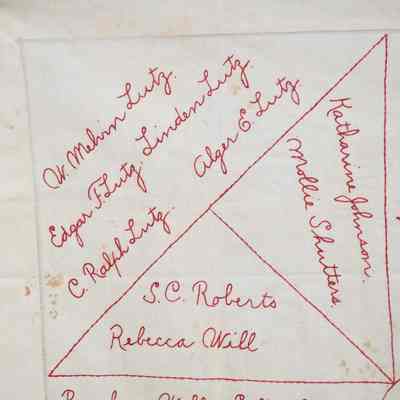 W. Melvin Lutz.
Edgar F. Lutz
Linden Lutz.
C. Ralph Lutz.
Alger E. Lutz
Katharine Johnson.
Mollie Shutters.
S.C. Roberts
Rebecca Will